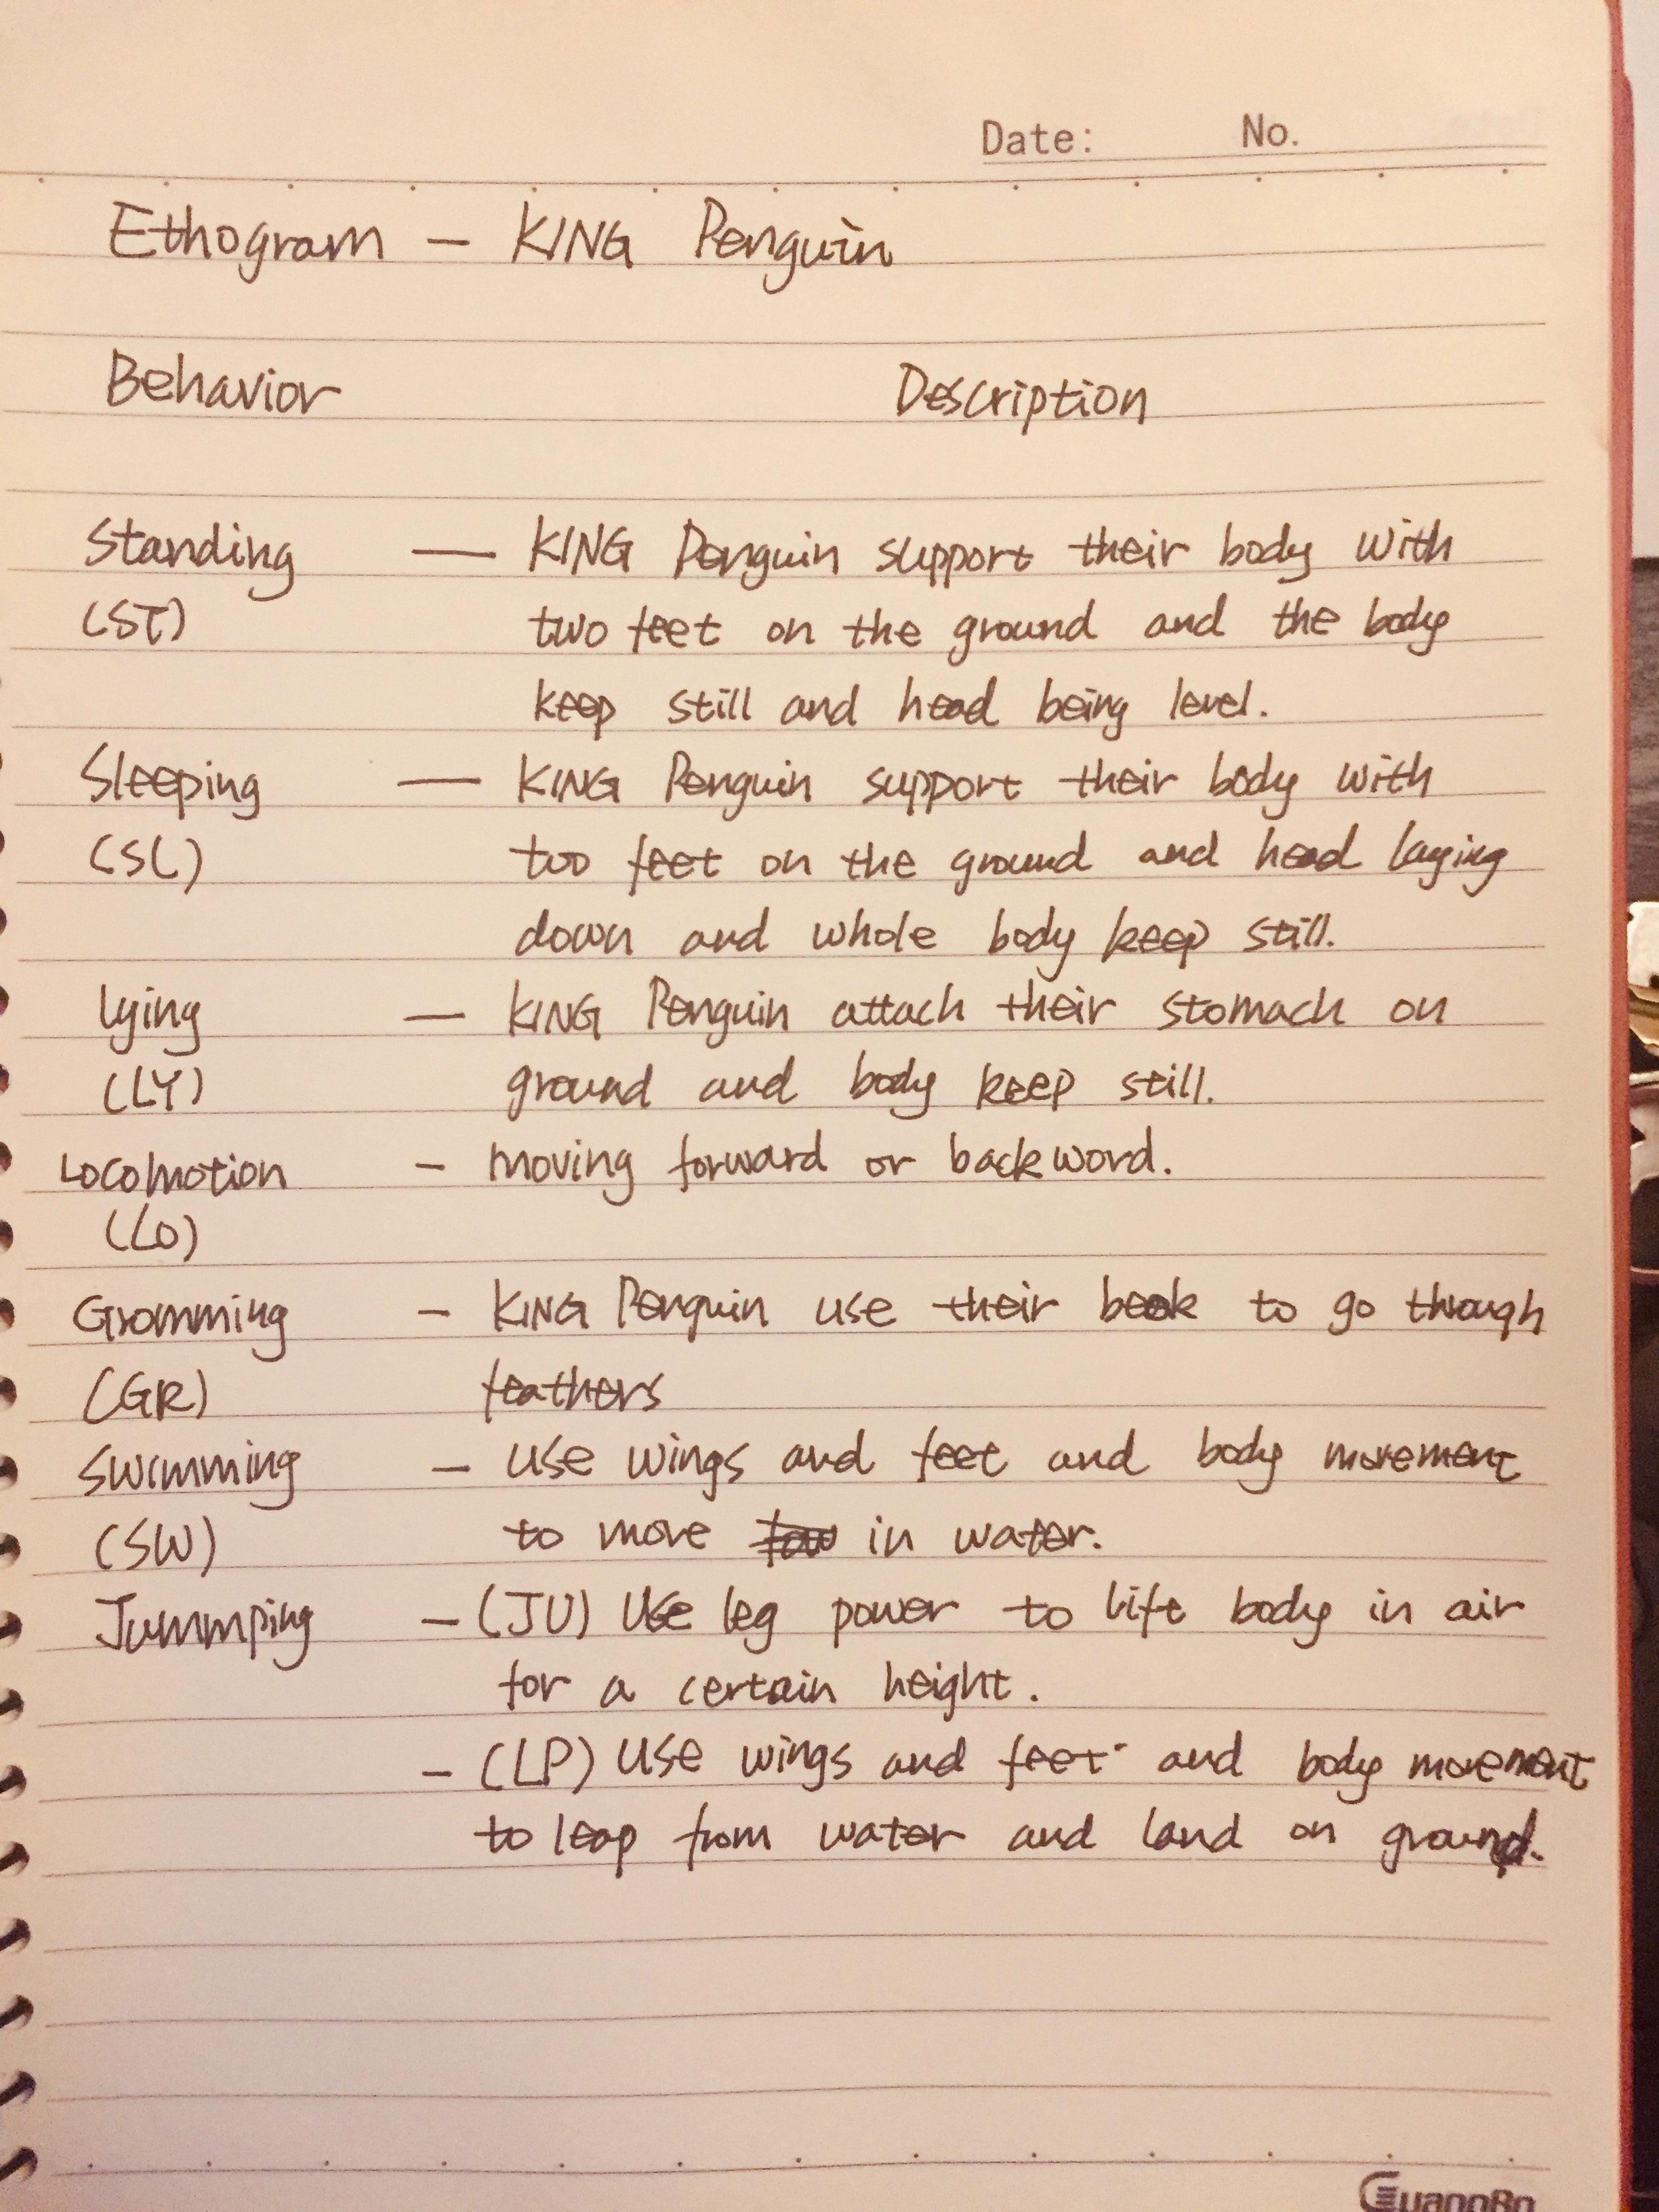 Date: No.
Ethogram — KING Penguin
Behavior Description
Standing — KING Penguin support their body with
(ST) two feet on the ground and the body
keep still and head being level.
Sleeping — KING Penguin support their body with
(SL) two feet on the ground and head laying
down and whole body keep still.
lying — KING Penguin attach their stomach on
(LY) ground and body keep still.
Locomotion - moving forward or backword.
(LO)
Gromming - KING Penguin use their beak to go through
(GR) feathers
Swimming - use wings and feet and body movement
(SW) to move in water.
Jummping - (JU) Use leg power to lift body in air
for a certain height.
- (LP) Use wings and feet and body movement
to leap from water and land on ground.